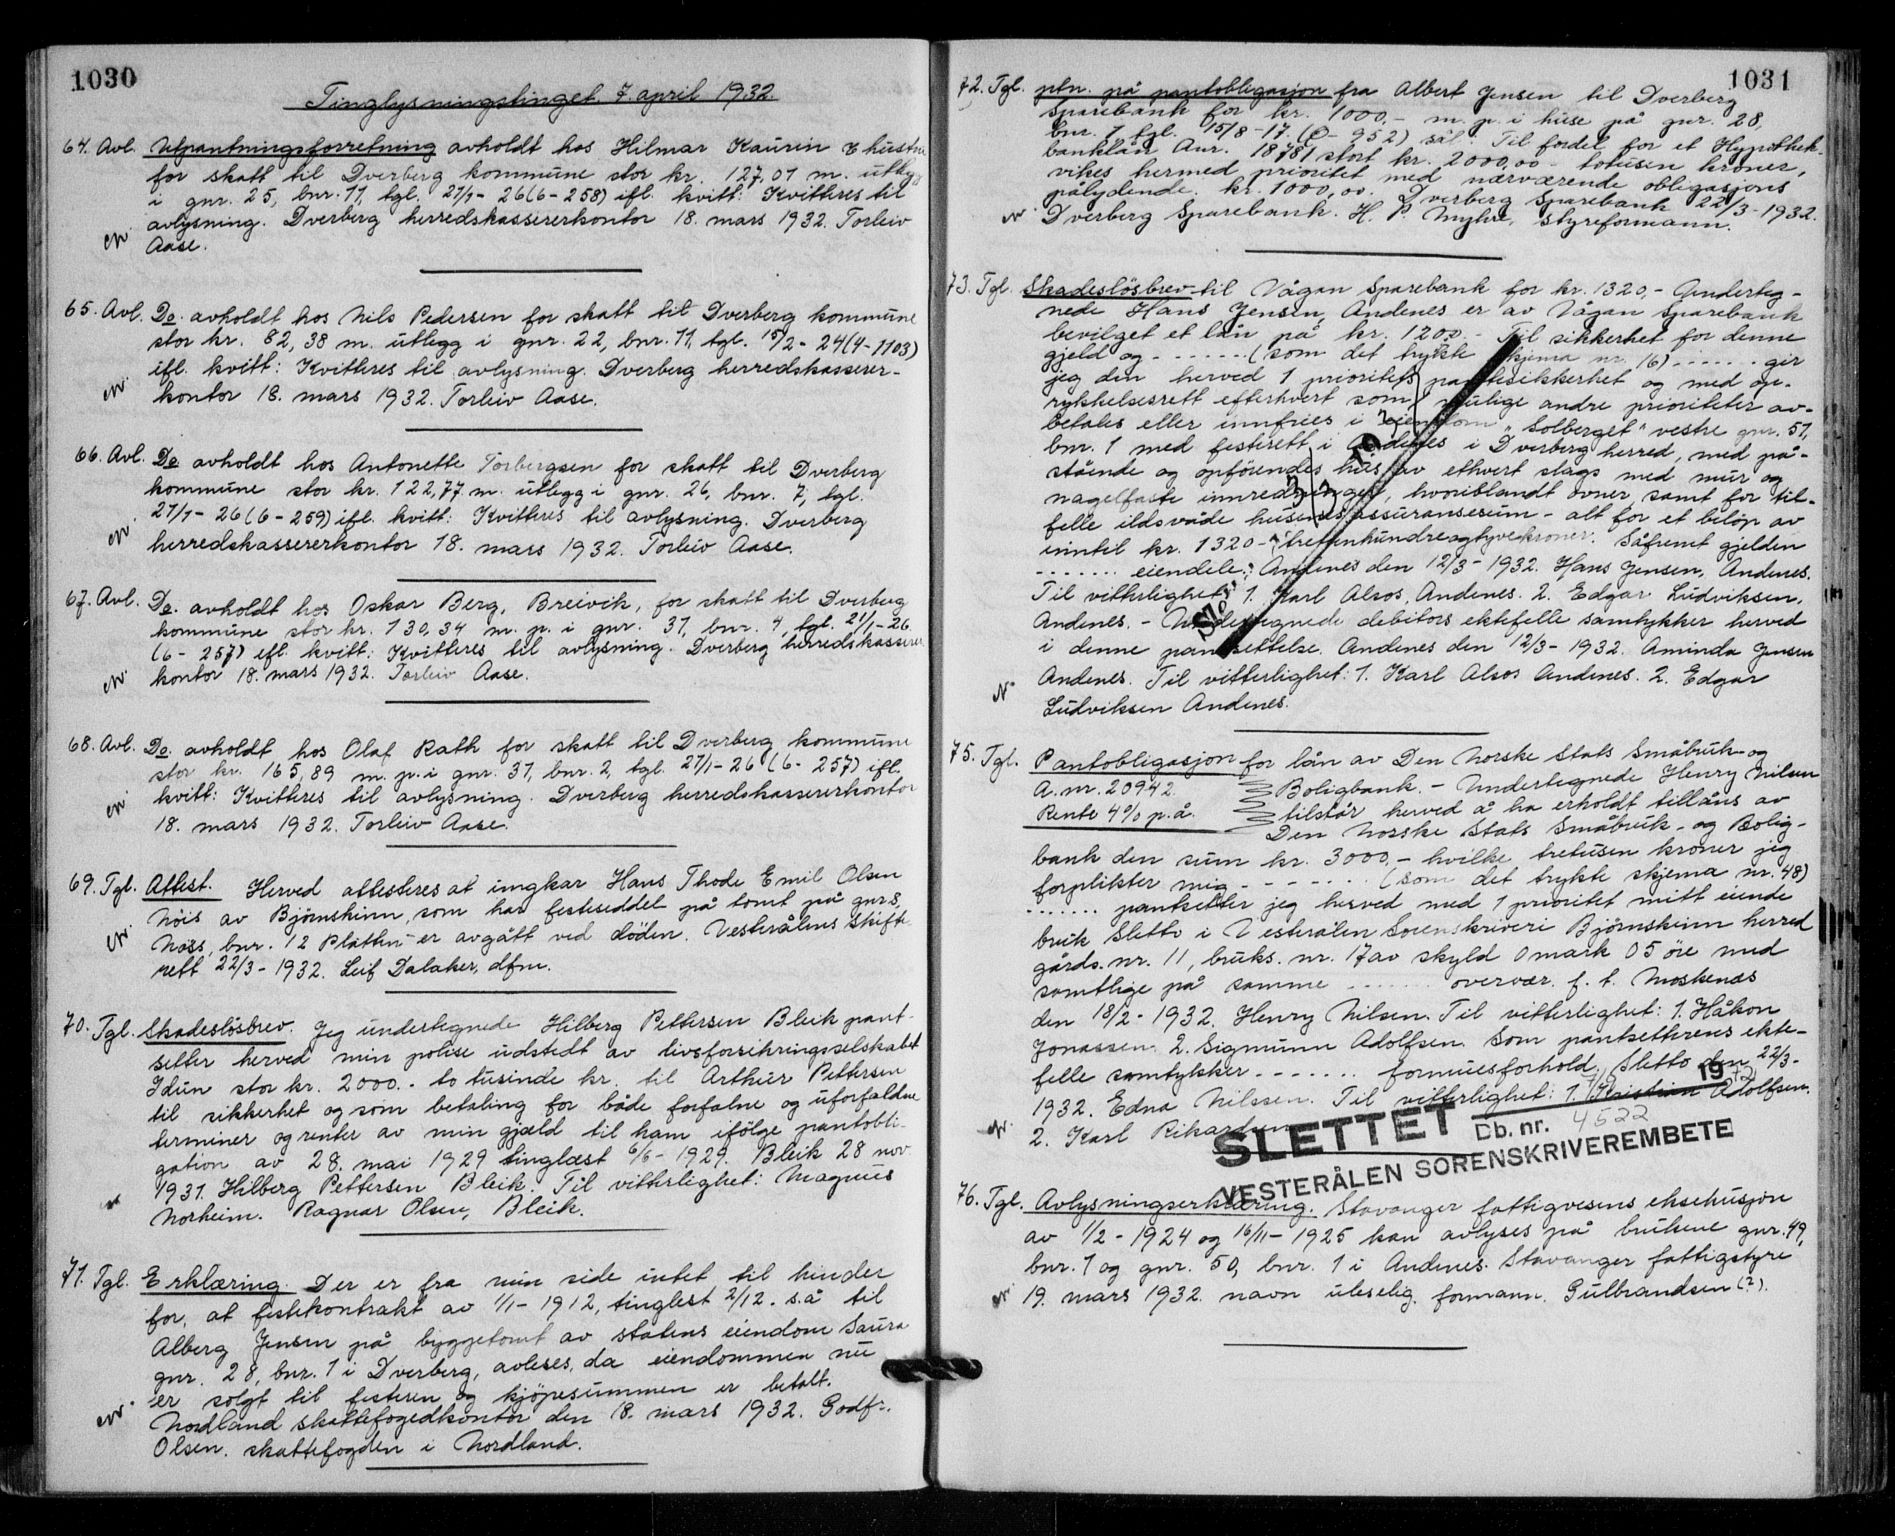 1030
Tinglysningstinget 7. april 1932.
64. Avl. Utpantningsforretning avholdt hos Hilmar Kaurin & hustru
for skatt til Dverberg kommune stor kr. 127,01 m. utlegg
i gnr. 25, bnr. 11, tgl. 21/1- 26 (6-258) ifl. kvitt: Kvitteres til
avlysning. Dverberg herredskassererkontor 18. mars 1932. Torleiv
Aase.
65. Avl. Do. avholdt hos Nils Pedersen for skatt til Dverberg kommune
stor kr. 82,38 m. utlegg i gnr. 22, bnr. 11, tgl. 15/2- 24 (4-1103)
ifl. kvitt: Kvitteres til avlysning. Dverberg herredskasserer-
kontor 18. mars 1932. Torleiv Aase.
66. Avl. Do avholdt hos Antonette Torbergsen for skatt til Dverberg
kommune stor kr. 122,77 m. utlegg i gnr. 26, bnr. 7, tgl.
21/1- 26 (6-259) ifl. kvitt: Kvitteres til avlysning. Dverberg
herredskassererkontor 18. mars 1932. Torleiv Aase.
67. Avl. Do. avholdt hos Oskar Berg, Breivik, for skatt til Dverberg
kommune stor kr. 130,34 m. p. i gnr. 31, bnr. 4, tgl. 21/1-26
(6-257) ifl. kvitt: Kvitteres til avlysning. Dverberg herredskasserer
kontor 18. mars 1932. Torleiv Aase.
68. Avl. Do. avholdt hos Olaf Rath for skatt til Dverberg kommune
stor kr. 165,89 m. p. i gnr. 31, bnr. 2, tgl. 21/1-26 (6-257) ifl.
kvitt: Kvitteres til avlysning. Dverberg herredskassererkontor
18. mars 1932. Torleiv Aase.
69. Tgl. Attest. Herved attesteres at ungkar Hans Thode Emil Olsen
Nöis av Bjørnskinn, som har festeseddel på tomt på gnr. 8,
Nöss, bnr. 12 Platten - er avgått ved døden. Vesterålens skifte
rett 22/3-1932. Leif Dalaker, dfm.
70. Tgl. Skadeslösbrev. Jeg undertegnede Hilberg Pettersen Bleik pant-
setter herved min polise udstedt av livsforsikringsselskabet
Idun stor kr. 2000.- to tusinde kr. til Arthur Pettersen
til sikkerhet og som betaling for både forfalne og uforfaldne
terminer og renter av min gjæld til ham ifölge pantobli-
gation av 28. mai 1929 tinglæst 6/6-1929. Bleik 28 nov.
1931. Hilberg Pettersen Bleik. Til vitterlighet: Magnus
Norheim. Ragnar Olsen, Bleik.
71. Tgl. Erklæring. Der er fra min side intet til hinder
for, at festekontrakt av 1/1-1912, tinglest 2/12. s.å til
Alberg Jensen på byggetomt av statens eiendom Saura
gnr. 28, bnr. 1 i Dverberg, avleses, da eiendommen nu
er solgt til festeren og kjöpesummen er betalt.
Nordland skattefogedkontor den 18. mars 1932. Godf.
Olsen. skattefogden i Nordland.
1031
72. Tgl. ptn. på pantobligasjon fra Albert Jensen til Dverberg
Sparebank for kr. 1000.- m. p. i huse på gnr. 28,
bnr. 1, tgl. 15/8-17. (O-952) sål. Til fordel for et Hypothek-
banklån Anr. 18781 stort kr. 2000,00 - totusen kroner,
vikes hermed prioritet med nærværende obligasjons
pålydende. kr. 1000,00. Dverberg Sparebank 22/3-1932.
Dverberg Sparebank. H. P. Myhre, styreformann.
73. Tgl. Skadeslösbrev til Vågan Sparebank for kr. 1320,- Underteg-
nede Hans Jensen, Andenes er av Vågan Sparebank
bevilget et lån på kr. 1200.- Til sikkerhet for denne
gjeld og - - - - - - (som det trykte skjema nr. 16) - - - - - gir
jeg den herved 1 prioritets pantesikkerhet og med op-
rykkelsesrett efterhvert som mulige andre prioriteter av-
betales eller innfries i eiendom "Solberget" vestre gnr. 51,
bnr. 1 med festerett i Andenes i Dverberg herred, med på-
stående og opförendes hus av ethvert slags med mur og
nagelfaste innredninger, hvoriblandt ovner, samt for til-
felle ildsvåde husenes assuransesum - alt for et belöp av
inntil kr. 1320- trettenhundreogtyvekroner. Såfremt gjelden
- - - - - - - eiendele. Andenes den 12/3-1932. Hans Jensen, Andenes.
Til vitterlighet: 1. Karl Alsos, Andenes. 2. Edgar Ludviksen,
Andenes. - Undertegnede debitors ektefelle samtykker herved
i denne pantsettelse. Andenes den 12/3-1932. Aminda Jensen
Andenes. Til vitterlighet: 1. Karl Alsos Andenes. 2. Edgar
Ludviksen Andenes.
75. Tgl. Pantobligasjon for lån av Den Norske Stats Småbruk- og
A. nr. 20942. Boligbank. - Undertegnede Henry Nilsen
Rente 4% p.å. tilstår herved å ha erholdt tillåns av
Den Norske Stats Småbruk- og Bolig-
bank den sum kr. 3000,- hvilke tretusen kroner jeg
forplikter mig - - - - - - - (som det trykte skjema nr. 48)
- - - - - - - pantsetter jeg herved med 1 prioritet mitt eiende
bruk Sletto i Vesterålen Sorenskriveri Bjørnskinn herred
gårds. nr. 11, bruks. nr. 17 av skyld 0 mark 05 öre med
samtlige på samme - - - - - - - overvær. f. t. Moskenes
den 18/2-1932. Henry Nilsen. Til vitterlighet: 1. Håkon
Jonassen. 2. Sigmunn Adolfsen. Som pantsetterens ekte-
felle samtykker - - - - - - - formuesforhold. Sletto den 22/3-
1932. Edna Nilssen. Til vitterlighet: 1. Kristian Adolfsen.
2. Karl Rikardsen
SLETTET 19 72
Db. nr. 4522
VESTERÅLEN SORENSKRIVEREMBETE
76. Tgl. Avlysningserklæring. Stavanger fattigvesens eksekusjon
av 1/2-1924 og 16/11-1925 kan avlyses på brukene gnr. 49,
bnr. 1 og gnr. 50, bnr. 1 i Andenes. Stavanger fattigstyre
19. mars 1932. navn uleselig. formann. Gulbrandsen (?).